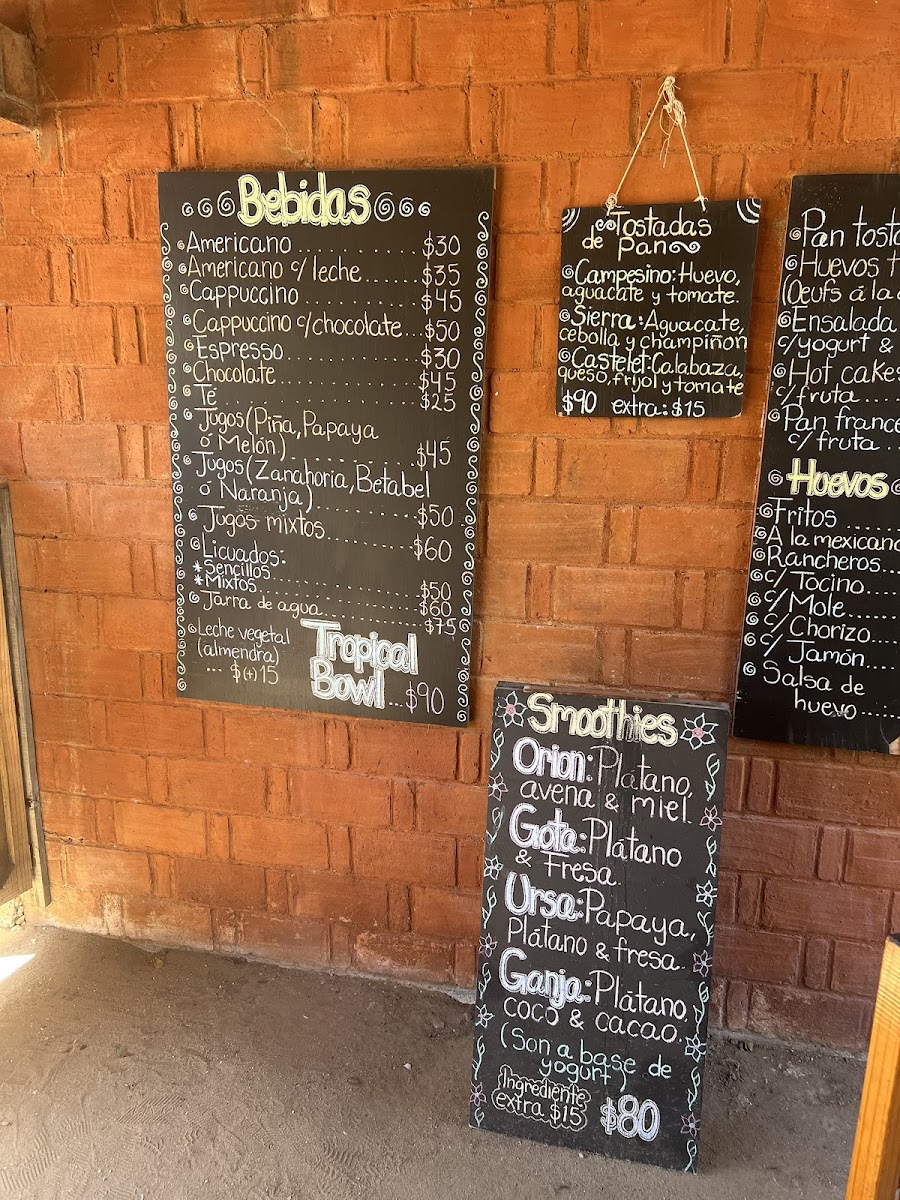 Bebidas
Americano............$30
Americano c/leche......$35
Cappuccino............$45
Cappuccino c/chocolate...$50
Espresso..............$30
Chocolate.............$45
Té....................$25
Jugos(Piña, Papaya
ó Melón)..............$45
Jugos(Zanahoria, Betabel
ó Naranja)............$50
Jugos mixtos..........$60
Licuados:
*Sencillos............$50
*Mixtos...............$60
Jarra de agua.........$75
Leche vegetal
(almendra)
... $(+)15
Tropical
Bowl...$90
Tostadas
de Pan
Campesino: Huevo,
aguacate y tomate.
Sierra: Aguacate,
cebolla y champiñon
Castelet: Calabaza,
queso, frijol y tomate
$90 extra: $15
Pan
Huevos
(Oeufs á la
Ensalada
c/yogurt &
Hot cakes
c/fruta...
Pan
c/fruta...
Huevos
Fritos.....
A la mexicana
Rancheros...
c/Tocino....
c/Mole.....
c/Chorizo...
c/Jamón....
Salsa de
huevo.....
Smoothies
Orion: Platano,
avena & miel.
Gota: Plátano
& Fresa.
Ursa: Papaya,
Plátano & fresa.
Ganja: Plátano,
coco & cacao.
(Son a base de
yogurt)
Ingrediente
extra $15
$80